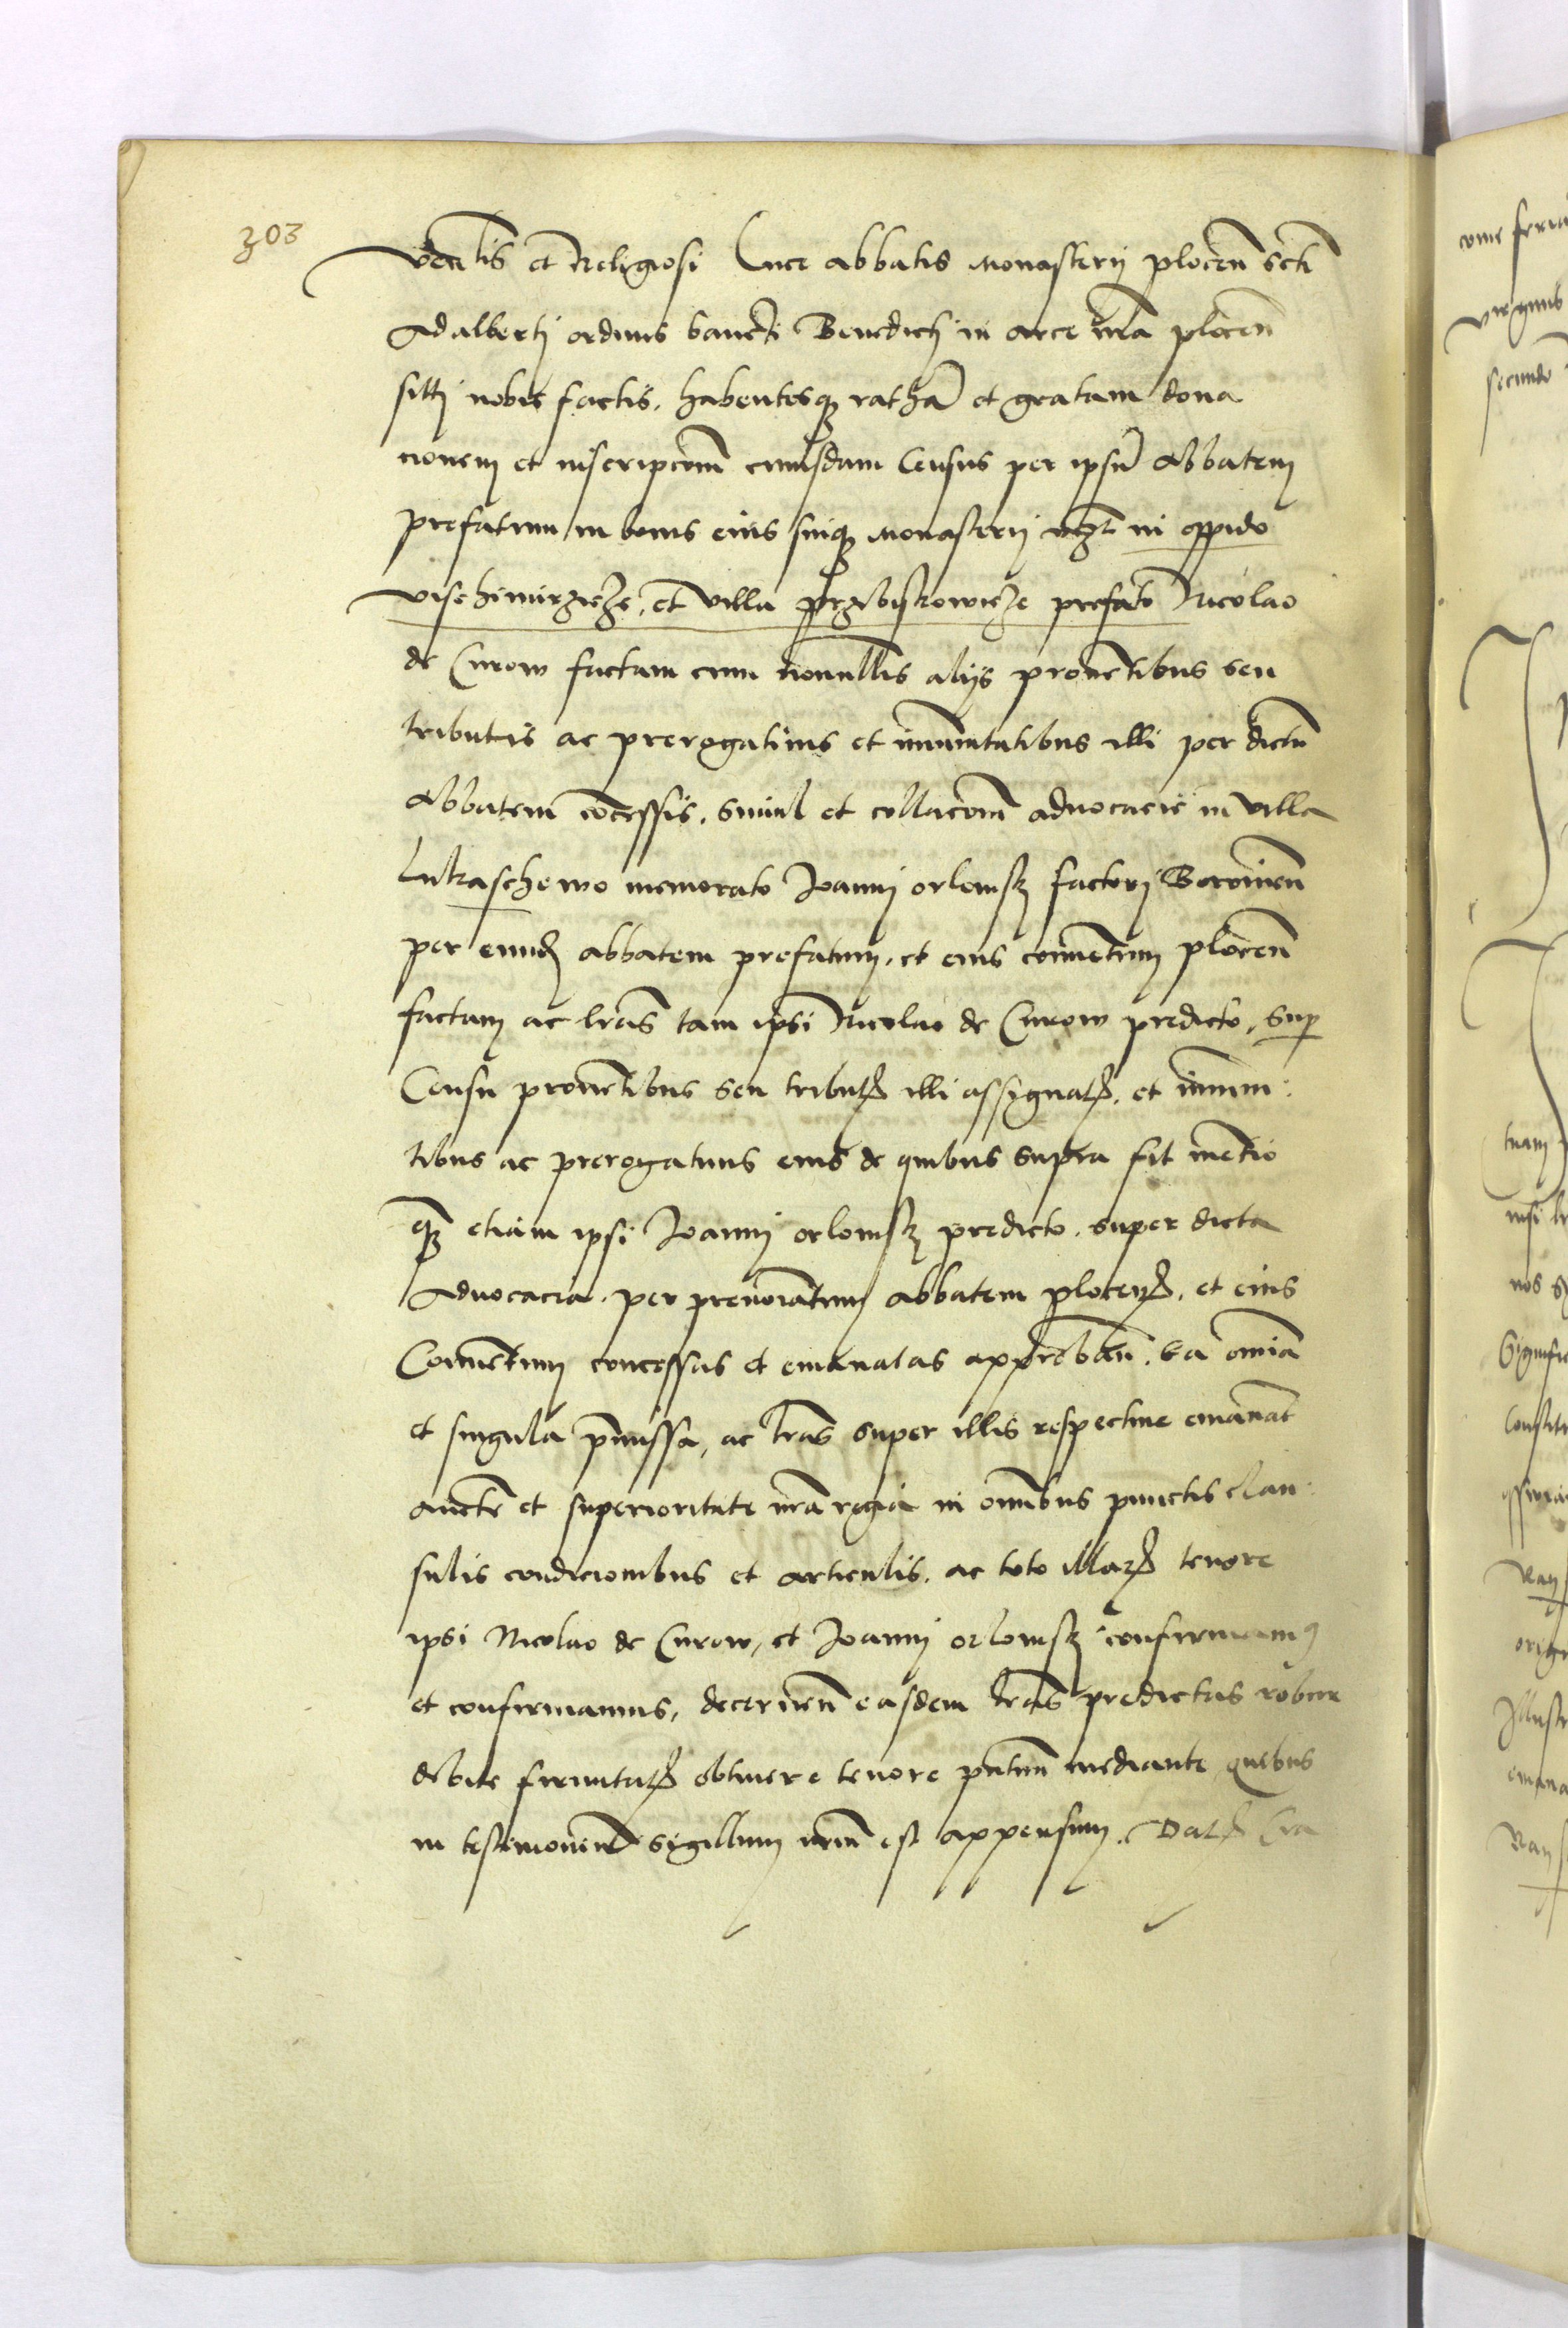 303
Ven̄lis et Religiosi Luce abbatis Monasterij plocen̄ scti
Adalberti ordinis Sancti Benedicti in arce nrā plocen̄
siti nobis factis, habentesq ratha et gratam dona
cionem et inscripcōm cuiusdam Census per ipsū Abbatem
prefatum in bonis eius suiq Monasterij vz in oppido
Vischimirzicze, et villa przibiskowicze prefato Nicolao
de Curow factam cum nonullis alijs proventibus seu
tributis ac prerogativis et imunitatibus illi per dictū
Abbatem cōcessis, Simul et collacōm advocacie in villa
Lukaschewo memorato Joanni orlomsk factori
per eund abbatem prefatum, et eius conventum plocen̄
factam ac lras tam ipsi Nicolao de Curow predicto, Sup
Censu proventibus seu tribut illi assignat, et imuni
tibus ac prerogativis eius de quibus supra fit mentio
q etiam ipsi Joanni orlomsk predicto, super dicta
Advocacia, per prenoīatum abbatem plocen, et eius
Conventum concessas et emanatas approban̄, Ea omīa
et singula pmissa, ac lras super illis respective emanat
aucte et superioritate nrā regia in omībus punctis clau
sulis condicionibus et articulis, ac toto illar tenore
ipsi Nicolao de Curow, et Joanni orlomsk confirmam
et confirmamus, decernen̄ easdem lras predictas robur
debite firmitat obtinere tenore pn̄tium mediante quibus
in testimonium sigillum nrm est appensum. Dat Cra